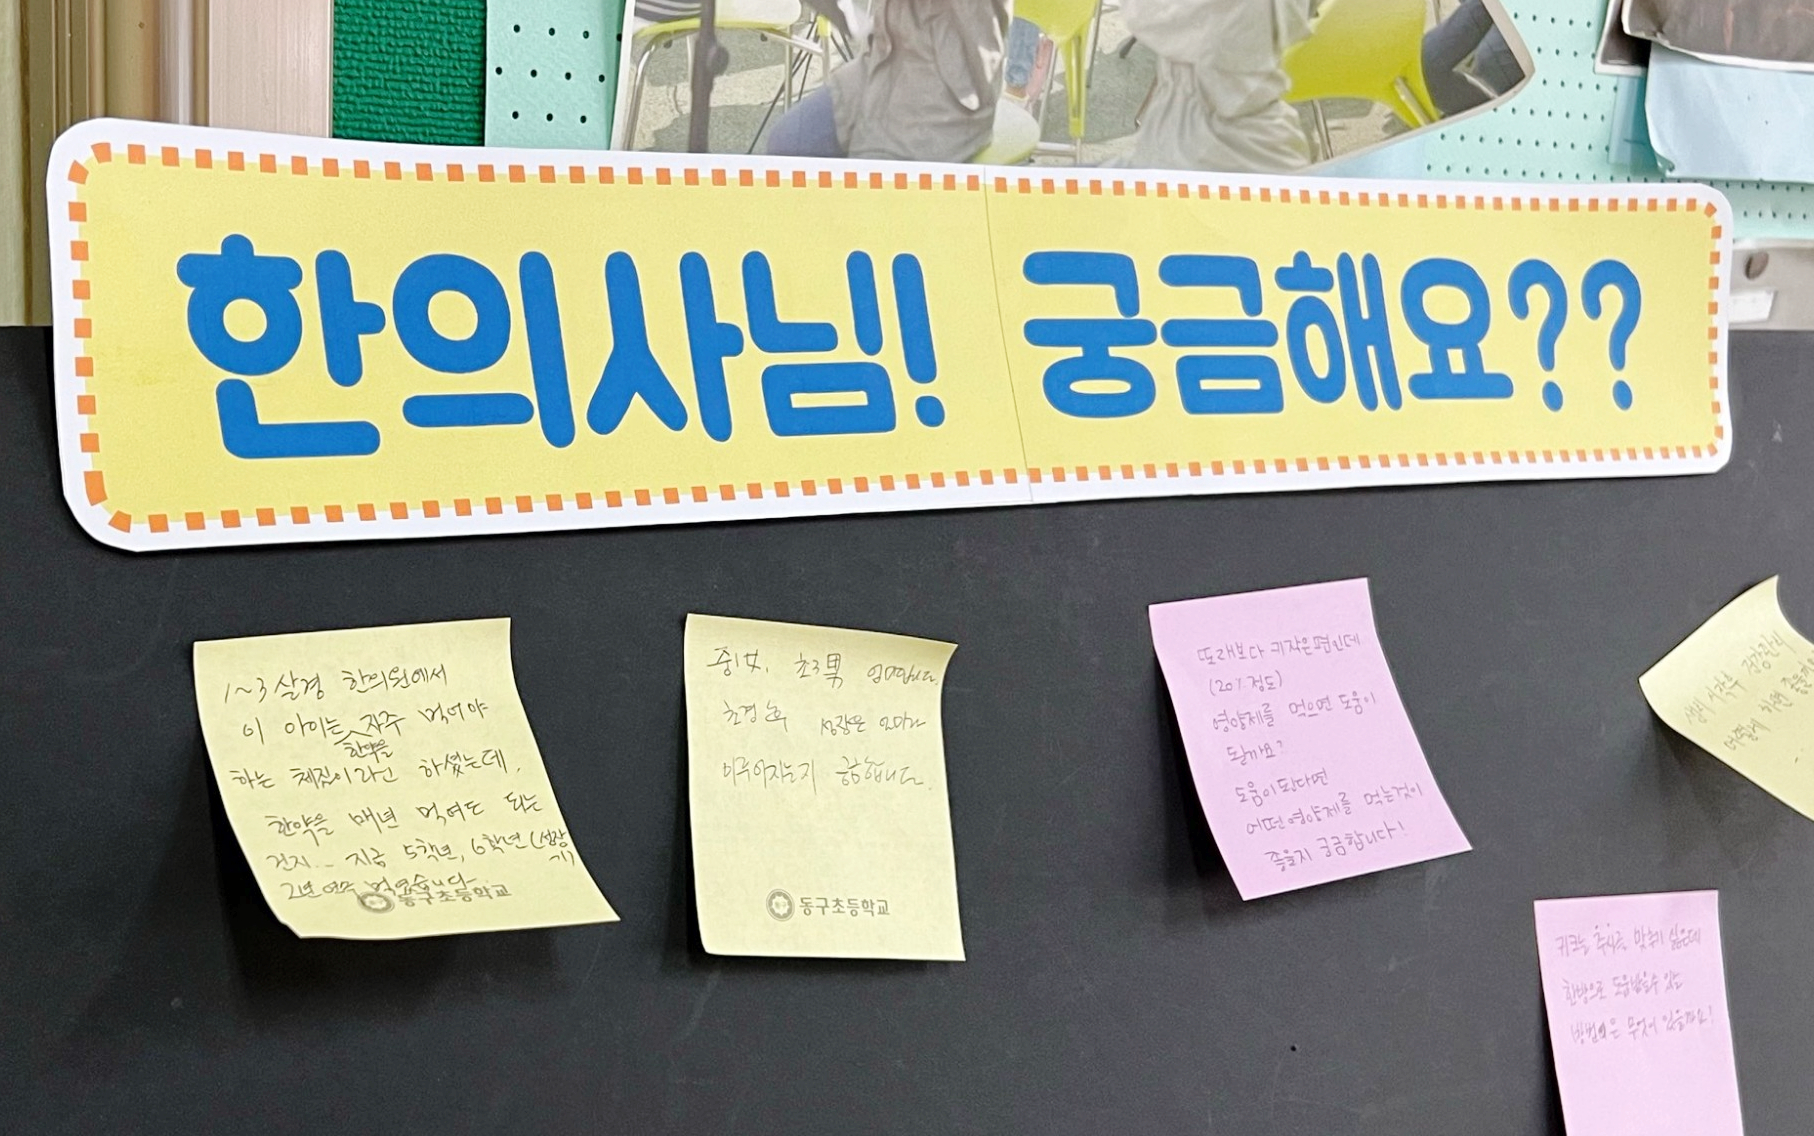 한의사님! 궁금해요??
1~3살경 한의원에서
이 아이는 한약을 자주 먹어야
하는 체질이라고 하셨는데,
한약을 매년 먹여도 되는
건지... 지금 5학년, 6학년 (성장기)
2년 연속 먹였습니다.
동구초등학교
중1女, 초3男 엄마입니다.
초경 후 성장은 얼마나
이루어지는지 궁금합니다.
동구초등학교
또래보다 키작은편인데
(20% 정도)
영양제를 먹으면 도움이
될까요?
도움이 된다면
어떤 영양제를 먹는것이
좋을지 궁금합니다!
생리 시작후 건강관리
어떻게 하면 좋을지
키크는 주사를 맞추기 싫은데
한방으로 도움받을수 있는
방법은 무엇이 있을까요!